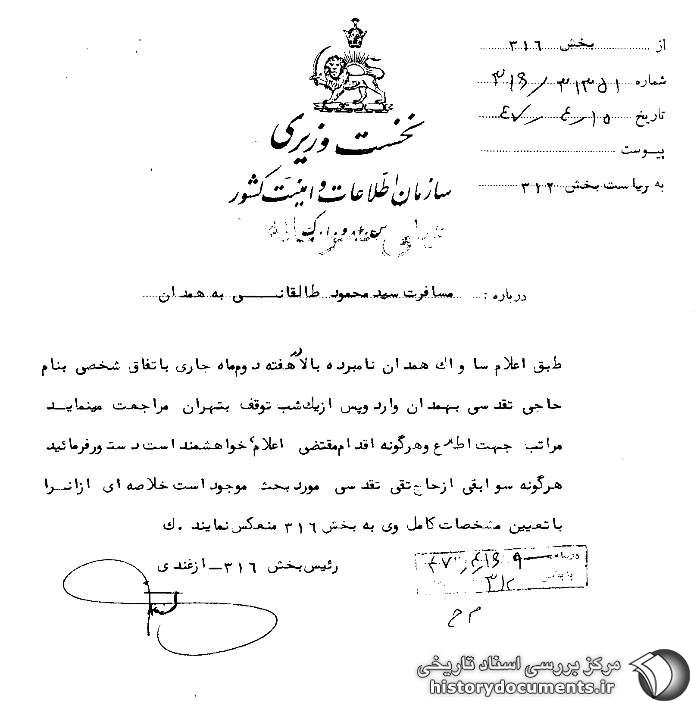 از بخش ۳۱۶
شماره ۳۱۶/۳۱۳۵۱
تاریخ ۴۷/۴/۱۵
پیوست
به ریاست بخش ۳۱۲
نخست وزیری
سازمان اطلاعات و امنیت کشور
س.ا.و.ا.ک
درباره: مسافرت سید محمود طالقانی به همدان
طبق اعلام ساواک همدان نامبرده بالا در هفته دوم ماه جاری باتفاق شخصی بنام
حاجی تقدسی بهمدان وارد وپس ازیک شب توقف بتهران مراجعت مینماید
مراتب جهت اطلاع وهرگونه اقدام مقتضی اعلام خواهشمند است دستور فرمائید
هرگونه سوابقی ازحاج تقی تقدسی مورد بحث موجود است خلاصه ای ازانرا
با تعیین مشخصات کامل وی به بخش ۳۱۶ منعکس نمایند .ک
رئیس بخش ۳۱۶ - ازغندی
م ح
مرکز بررسی اسناد تاریخی
historydocuments.ir